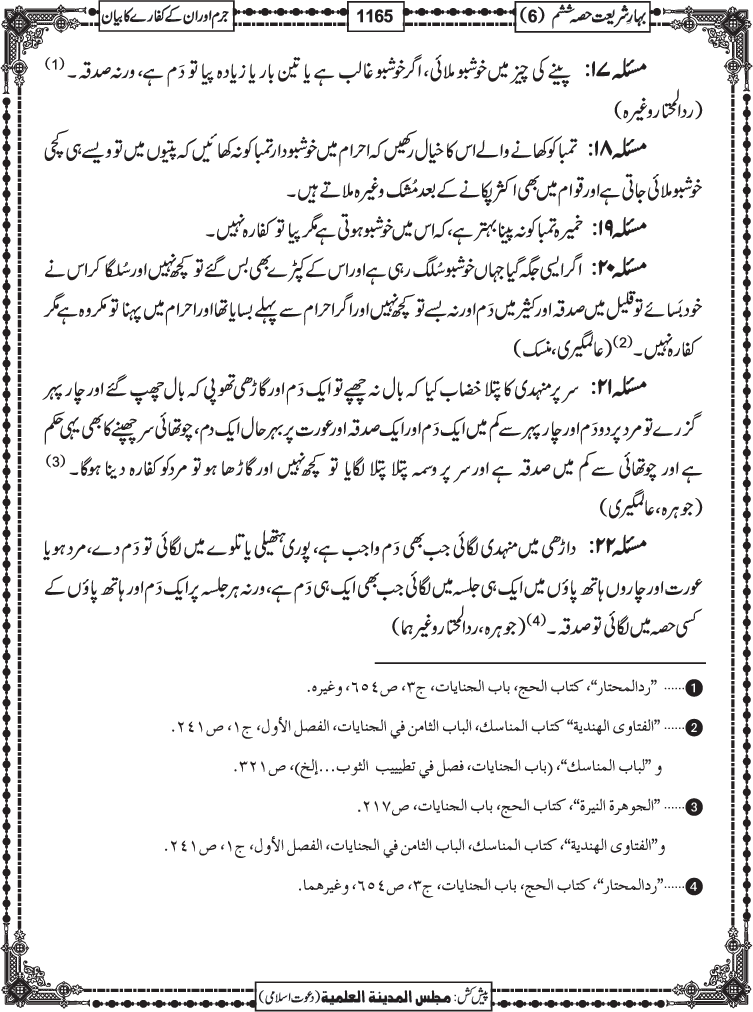 بہارِ شریعت حصہ ششم (6)
1165
جرم اور ان کے کفارے کا بیان
مسئلہ ۱۷: پینے کی چیز میں خوشبو ملائی، اگر خوشبو غالب ہے یا تین بار یا زیادہ پیا تو دَم ہے، ورنہ صدقہ۔ (1)
(ردالمحتار وغیرہ)
مسئلہ ۱۸: تمباکو کھانے والے اس کا خیال رکھیں کہ احرام میں خوشبودار تمباکو نہ کھائیں کہ پتیوں میں تو ویسے ہی کچی
خوشبو ملائی جاتی ہے اور قوام میں بھی اکثر پکانے کے بعد مُشک وغیرہ ملاتے ہیں۔
مسئلہ ۱۹: خمیرہ تمباکو نہ پینا بہتر ہے، کہ اس میں خوشبو ہوتی ہے مگر پیا تو کفارہ نہیں۔
مسئلہ ۲۰: اگر ایسی جگہ گیا جہاں خوشبو سُلگ رہی ہے اور اس کے کپڑے بھی بس گئے تو کچھ نہیں اور سُلگا کر اس نے
خود بَسائے تو قلیل میں صدقہ اور کثیر میں دَم اور نہ بسے تو کچھ نہیں اور اگر احرام سے پہلے بسایا تھا اور احرام میں پہنا تو مکروہ ہے مگر
کفارہ نہیں۔ (2) (عالمگیری، منسک)
مسئلہ ۲۱: سر پر منہدی کا پتلا خضاب کیا کہ بال نہ چھپے تو ایک دَم اور گاڑھی تھوپی کہ بال چھپ گئے اور چار پہر
گزرے تو مرد پر دو دَم اور چار پہر سے کم میں ایک دَم اور ایک صدقہ اور عورت پر بہرحال ایک دم، چوتھائی سر چھپنے کا بھی یہی حکم
ہے اور چوتھائی سے کم میں صدقہ ہے اور سر پر وسمہ پتلا پتلا لگایا تو کچھ نہیں اور گاڑھا ہو تو مرد کو کفارہ دینا ہوگا۔ (3)
(جوہرہ، عالمگیری)
مسئلہ ۲۲: داڑھی میں منہدی لگائی جب بھی دَم واجب ہے، پوری ہتھیلی یا تلوے میں لگائی تو دَم دے، مرد ہو یا
عورت اور چاروں ہاتھ پاؤں میں ایک ہی جلسہ میں لگائی جب بھی ایک ہی دَم ہے، ورنہ ہر جلسہ پر ایک دَم اور ہاتھ پاؤں کے
کسی حصہ میں لگائی تو صدقہ۔ (4) (جوہرہ، ردالمحتار وغیرہما)
1 ...... ”ردالمحتار“، كتاب الحج، باب الجنايات، ج٣، ص٦٥٤، وغيره.
2 ...... ”الفتاوى الهندية“ كتاب المناسك، الباب الثامن في الجنايات، الفصل الأول، ج١، ص٢٤١.
و ”لباب المناسك“، (باب الجنايات، فصل في تطيييب الثوب...إلخ)، ص٣٢١.
3 ...... ”الجوهرة النيرة“، كتاب الحج، باب الجنايات، ص٢١٧.
و”الفتاوى الهندية“، كتاب المناسك، الباب الثامن في الجنايات، الفصل الأول، ج١، ص٢٤١.
4 ......”ردالمحتار“، كتاب الحج، باب الجنايات، ج٣، ص٦٥٤، وغيرهما.
پیش کش: مجلس المدينة العلمية (دعوت اسلامی)